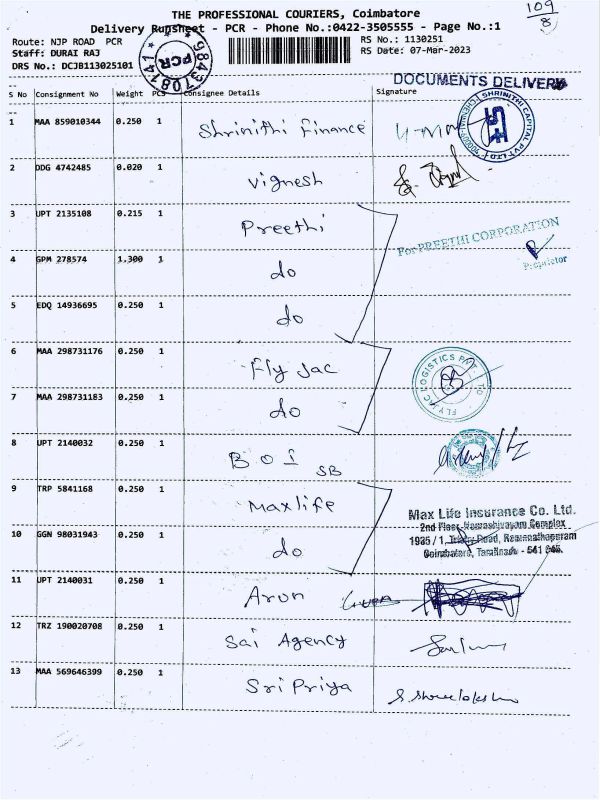 THE PROFESSIONAL COURIERS, Coimbatore
109
8
Delivery Runsheet - PCR - Phone No.:0422-3505555 - Page No.:1
Route: NJP ROAD PCR
RS No.: 1130251
Staff: DURAI RAJ
RS Date: 07-Mar-2023
DRS No.: DCJB113025101
PCR
DOCUMENTS DELIVERY
S No Consignment No Weight PCS Consignee Details Signature
1 MAA 859010344 0.250 1 Shrinithi finance
SHRINITHI CAPITAL PVT LTD
2 DDG 4742485 0.020 1 Vignesh
3 UPT 2135108 0.215 1 Preethi
For PREETHI CORPORATION
Proprietor
4 GPM 278574 1.300 1 do
5 EDQ 14936695 0.250 1 do
6 MAA 298731176 0.250 1 Fly Jac
FLYJAC LOGISTICS PVT LTD
7 MAA 298731183 0.250 1 do
8 UPT 2140032 0.250 1 BOI SB
9 TRP 5841168 0.250 1 Maxlife
Max Life Insurance Co. Ltd.
2nd Floor, Namashivayam Complex
1935 / 1, Trichy Road, Ramanathapuram
Coimbatore, Tamilnadu - 641 045.
10 GGN 98031943 0.250 1 do
11 UPT 2140031 0.250 1 Arun
12 TRZ 190020708 0.250 1 Sai Agency
13 MAA 569646399 0.250 1 Sri Priya